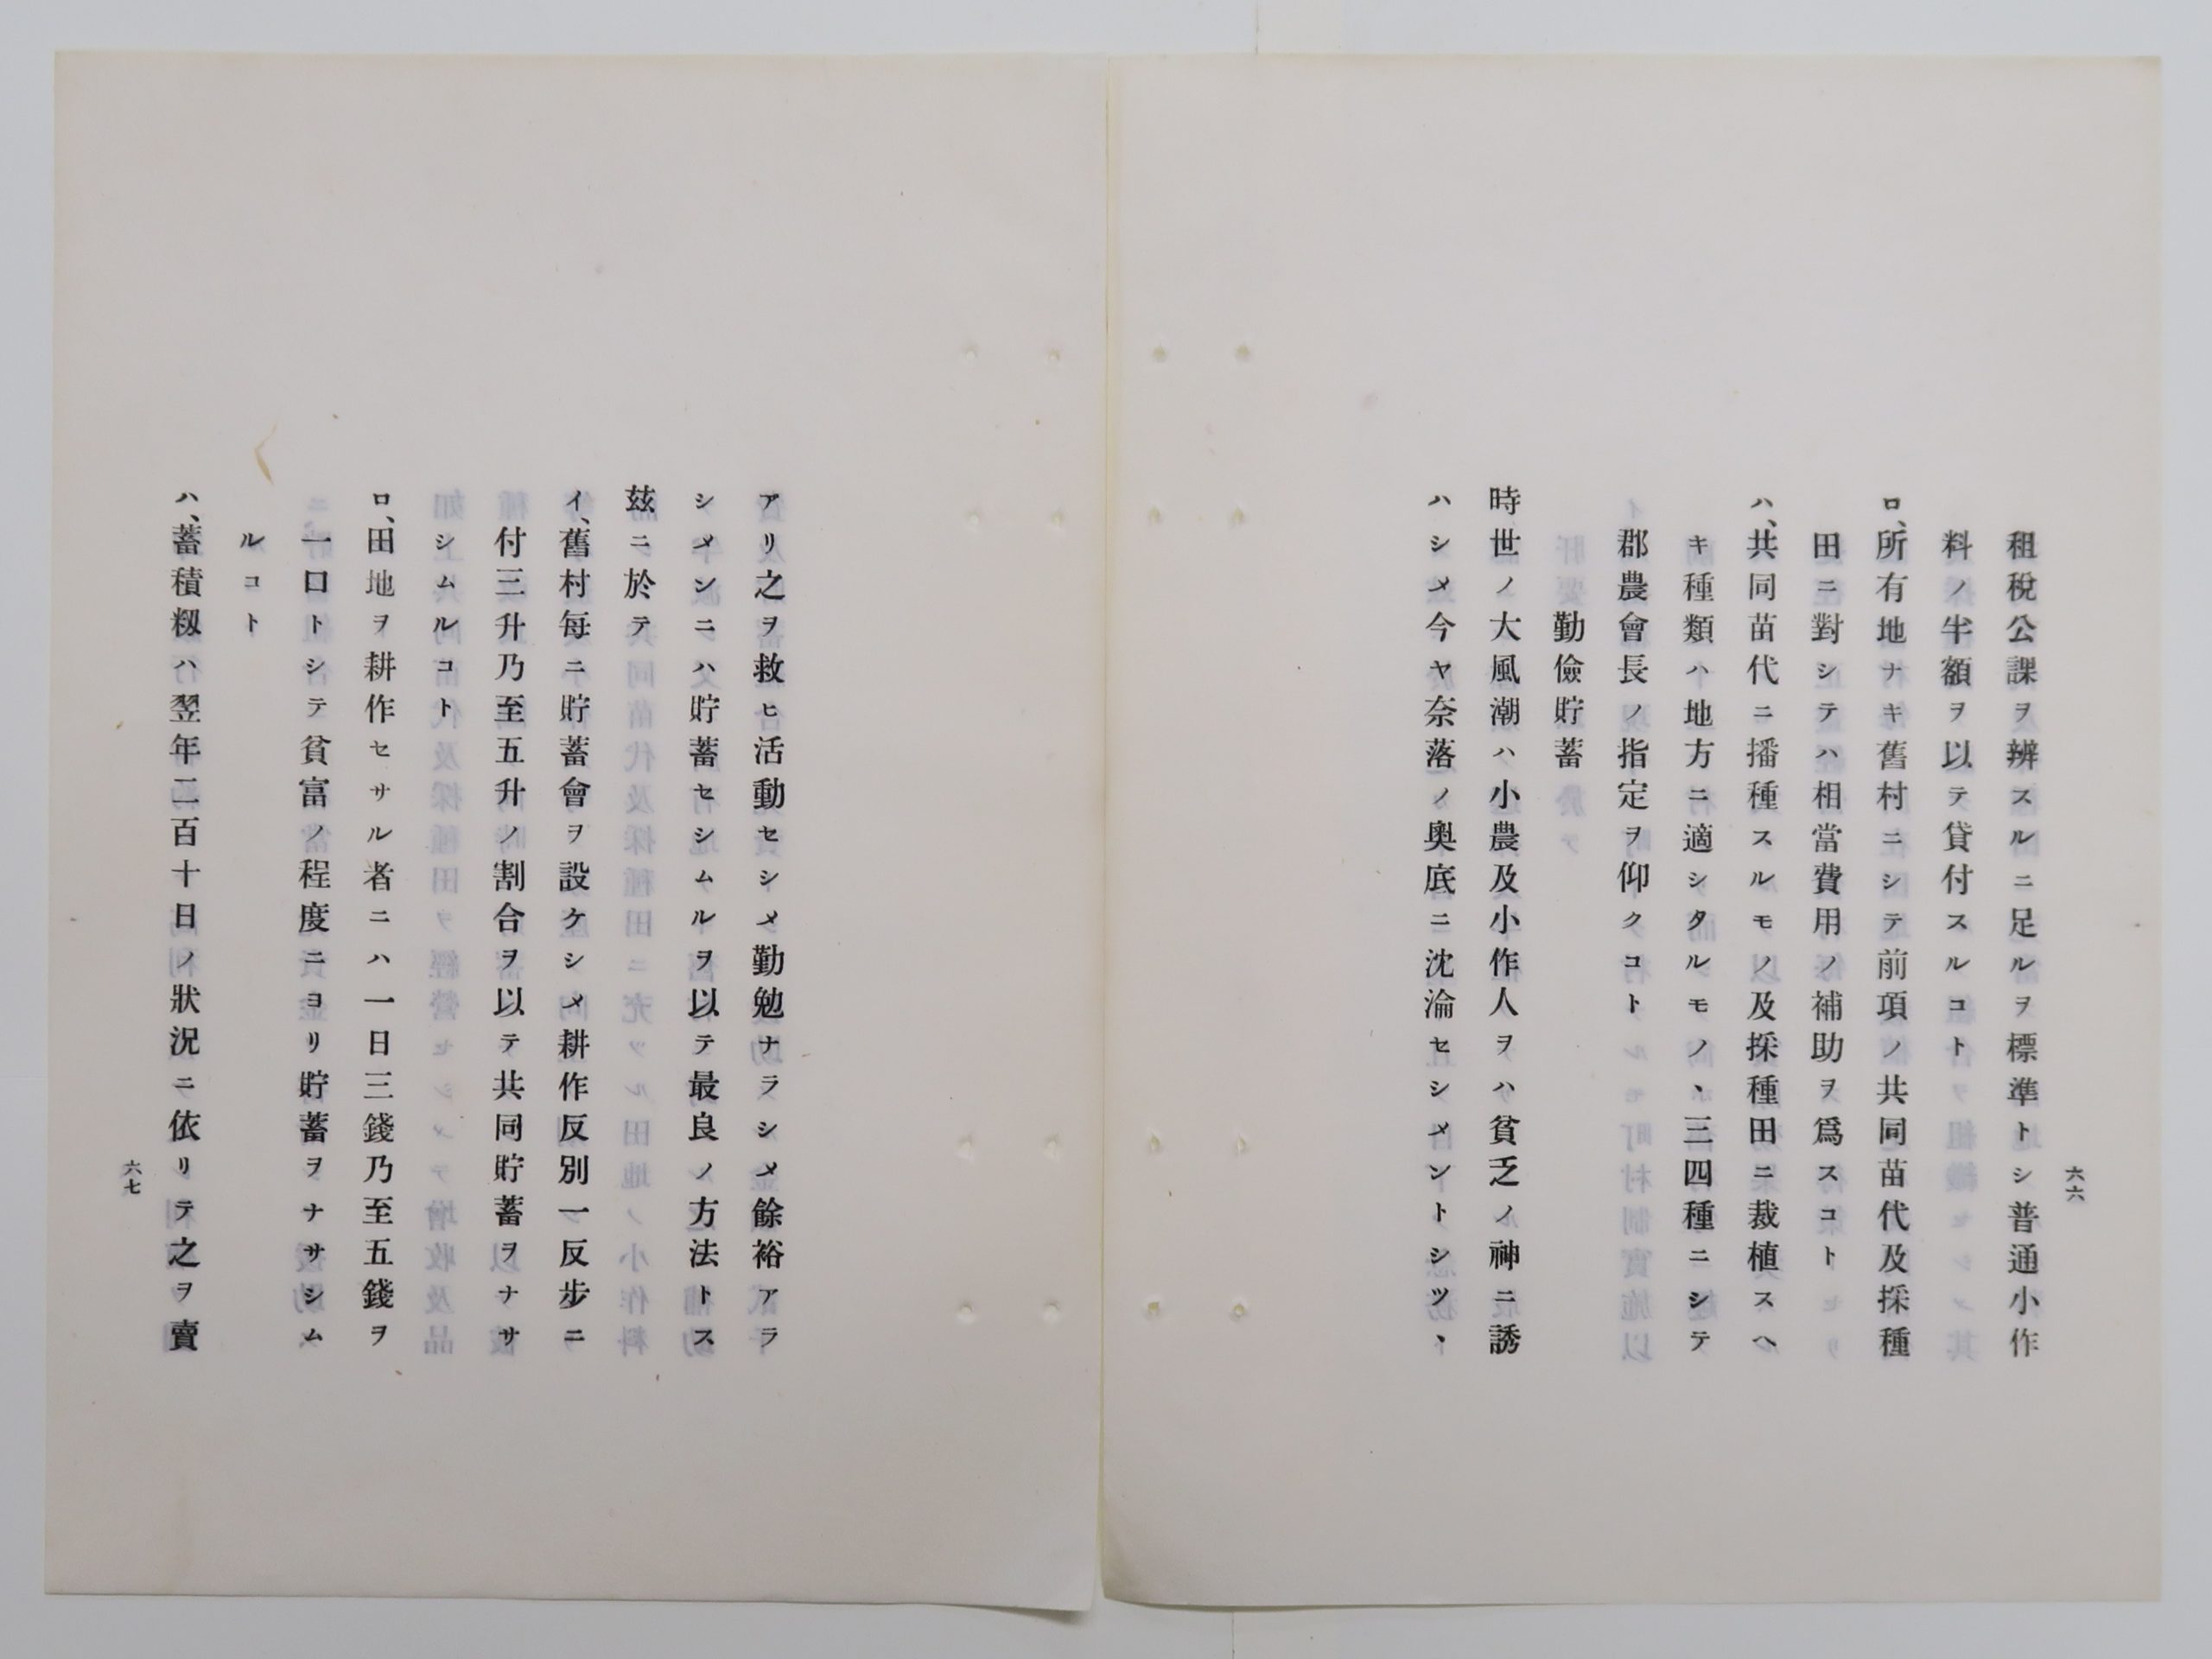 六六
租稅公課ヲ辨スルニ足ルヲ標準トシ普通小作
料ノ半額ヲ以テ貸付スルコト
ロ、所有地ナキ舊村ニシテ前項ノ共同苗代及採種
田ニ對シテハ相當費用ノ補助ヲ爲スコト
ハ、共同苗代ニ播種スルモノ及採種田ニ栽植スヘ
キ種類ハ地方ニ適シタルモノ、三四種ニシテ
郡農會長ノ指定ヲ仰クコト
勤儉貯蓄
時世ノ大風潮ハ小農及小作人ヲハ貧乏ノ神ニ誘
ハシメ今ヤ奈落ノ奧底ニ沈淪セシメントシツヽ
アリ之ヲ救ヒ活動セシメ勤勉ナラシメ餘裕アラ
シメンニハ貯蓄セシムルヲ以テ最良ノ方法トス
玆ニ於テ
イ、舊村每ニ貯蓄會ヲ設ケシメ耕作反別一反步ニ
付三升乃至五升ノ割合ヲ以テ共同貯蓄ヲナサ
シムルコト
ロ、田地ヲ耕作セサル者ニハ一日三錢乃至五錢ヲ
一口トシテ貧富ノ程度ニヨリ貯蓄ヲナサシム
ルコト
ハ、蓄積籾ハ翌年二百十日ノ狀況ニ依リテ之ヲ賣
六七